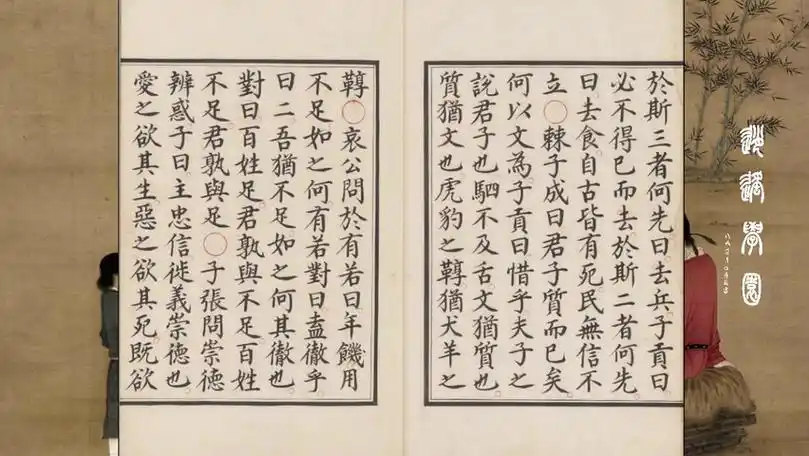 於斯三者何先曰去兵子貢曰
必不得已而去於斯二者何先
曰去食自古皆有死民無信不
立○棘子成曰君子質而已矣
何以文為子貢曰惜乎夫子之
說君子也駟不及舌文猶質也
質猶文也虎豹之鞟猶犬羊之
鞟○哀公問於有若曰年饑用
不足如之何有若對曰盍徹乎
曰二吾猶不足如之何其徹也
對曰百姓足君孰與不足百姓
不足君孰與足○子張問崇德
辨惑子曰主忠信徙義崇德也
愛之欲其生惡之欲其死既欲
學園